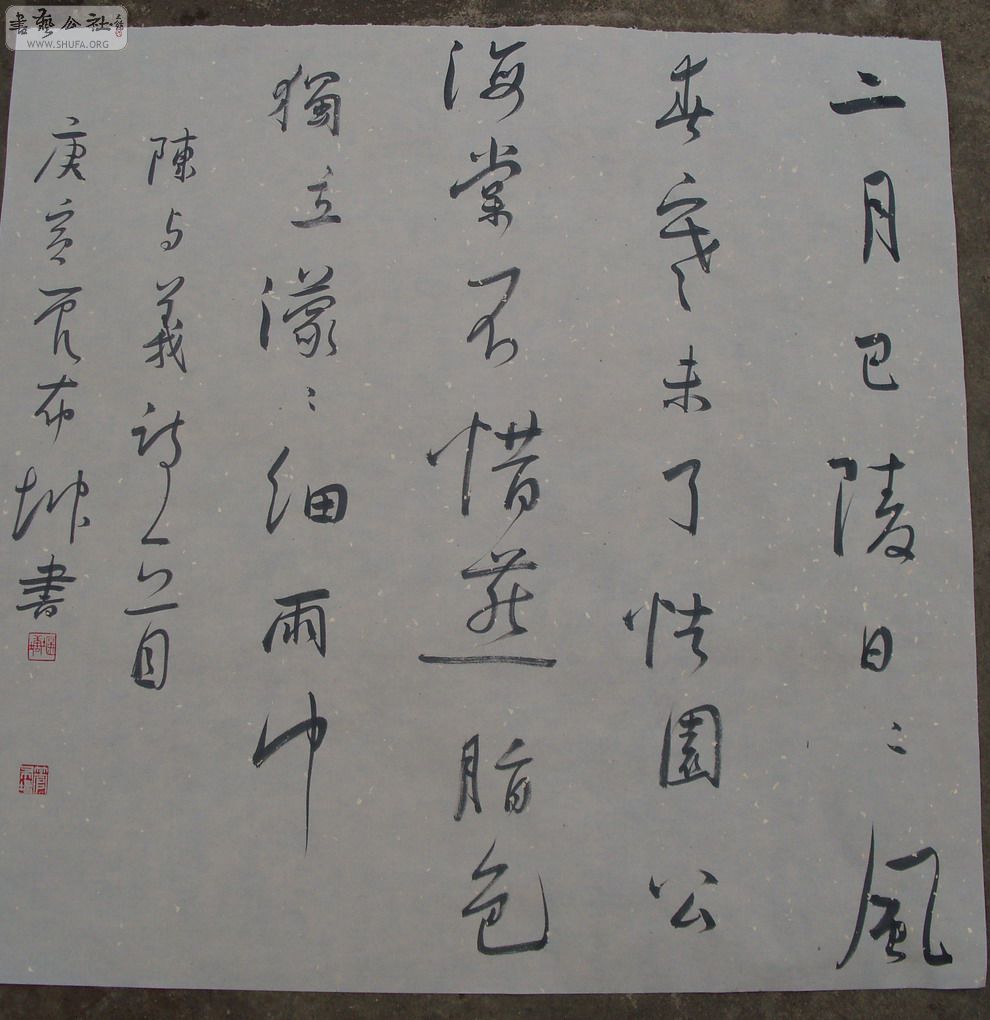 書藝公社
WWW.SHUFA.ORG
二月巴陵日〻風
春寒未了怯園公
海棠不惜燕脂色
獨立濛〻細雨中
陳与義詩一首
庚寅坤書